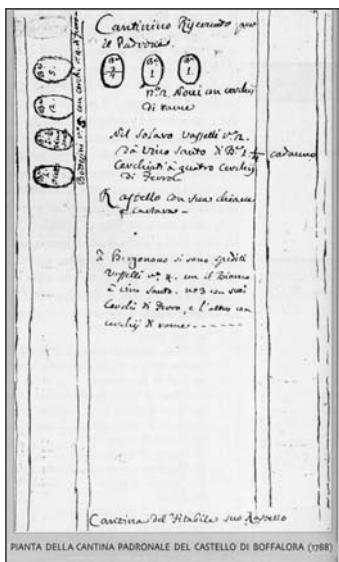 Cantinino Riservato per
il Padrone.
n.º 2. Novi con cerchij
di rame
Nel Solaro Vasselli n.º 2.
dà Vino Santo di
cadauno
Cerchiati à quatro Cerchij
di Ferro
Rastello con sua chiave
à
Bergonano si sono spediti
Vasselli n.º 4. con il Bianco
à vino Santo. nº 3 con suoi
Cerchi di Ferro, e l'altro con
cerchij di rame
Cantina del Vitabile suo Rastello
PIANTA DELLA CANTINA PADRONALE DEL CASTELLO DI BOFFALORA (1788)